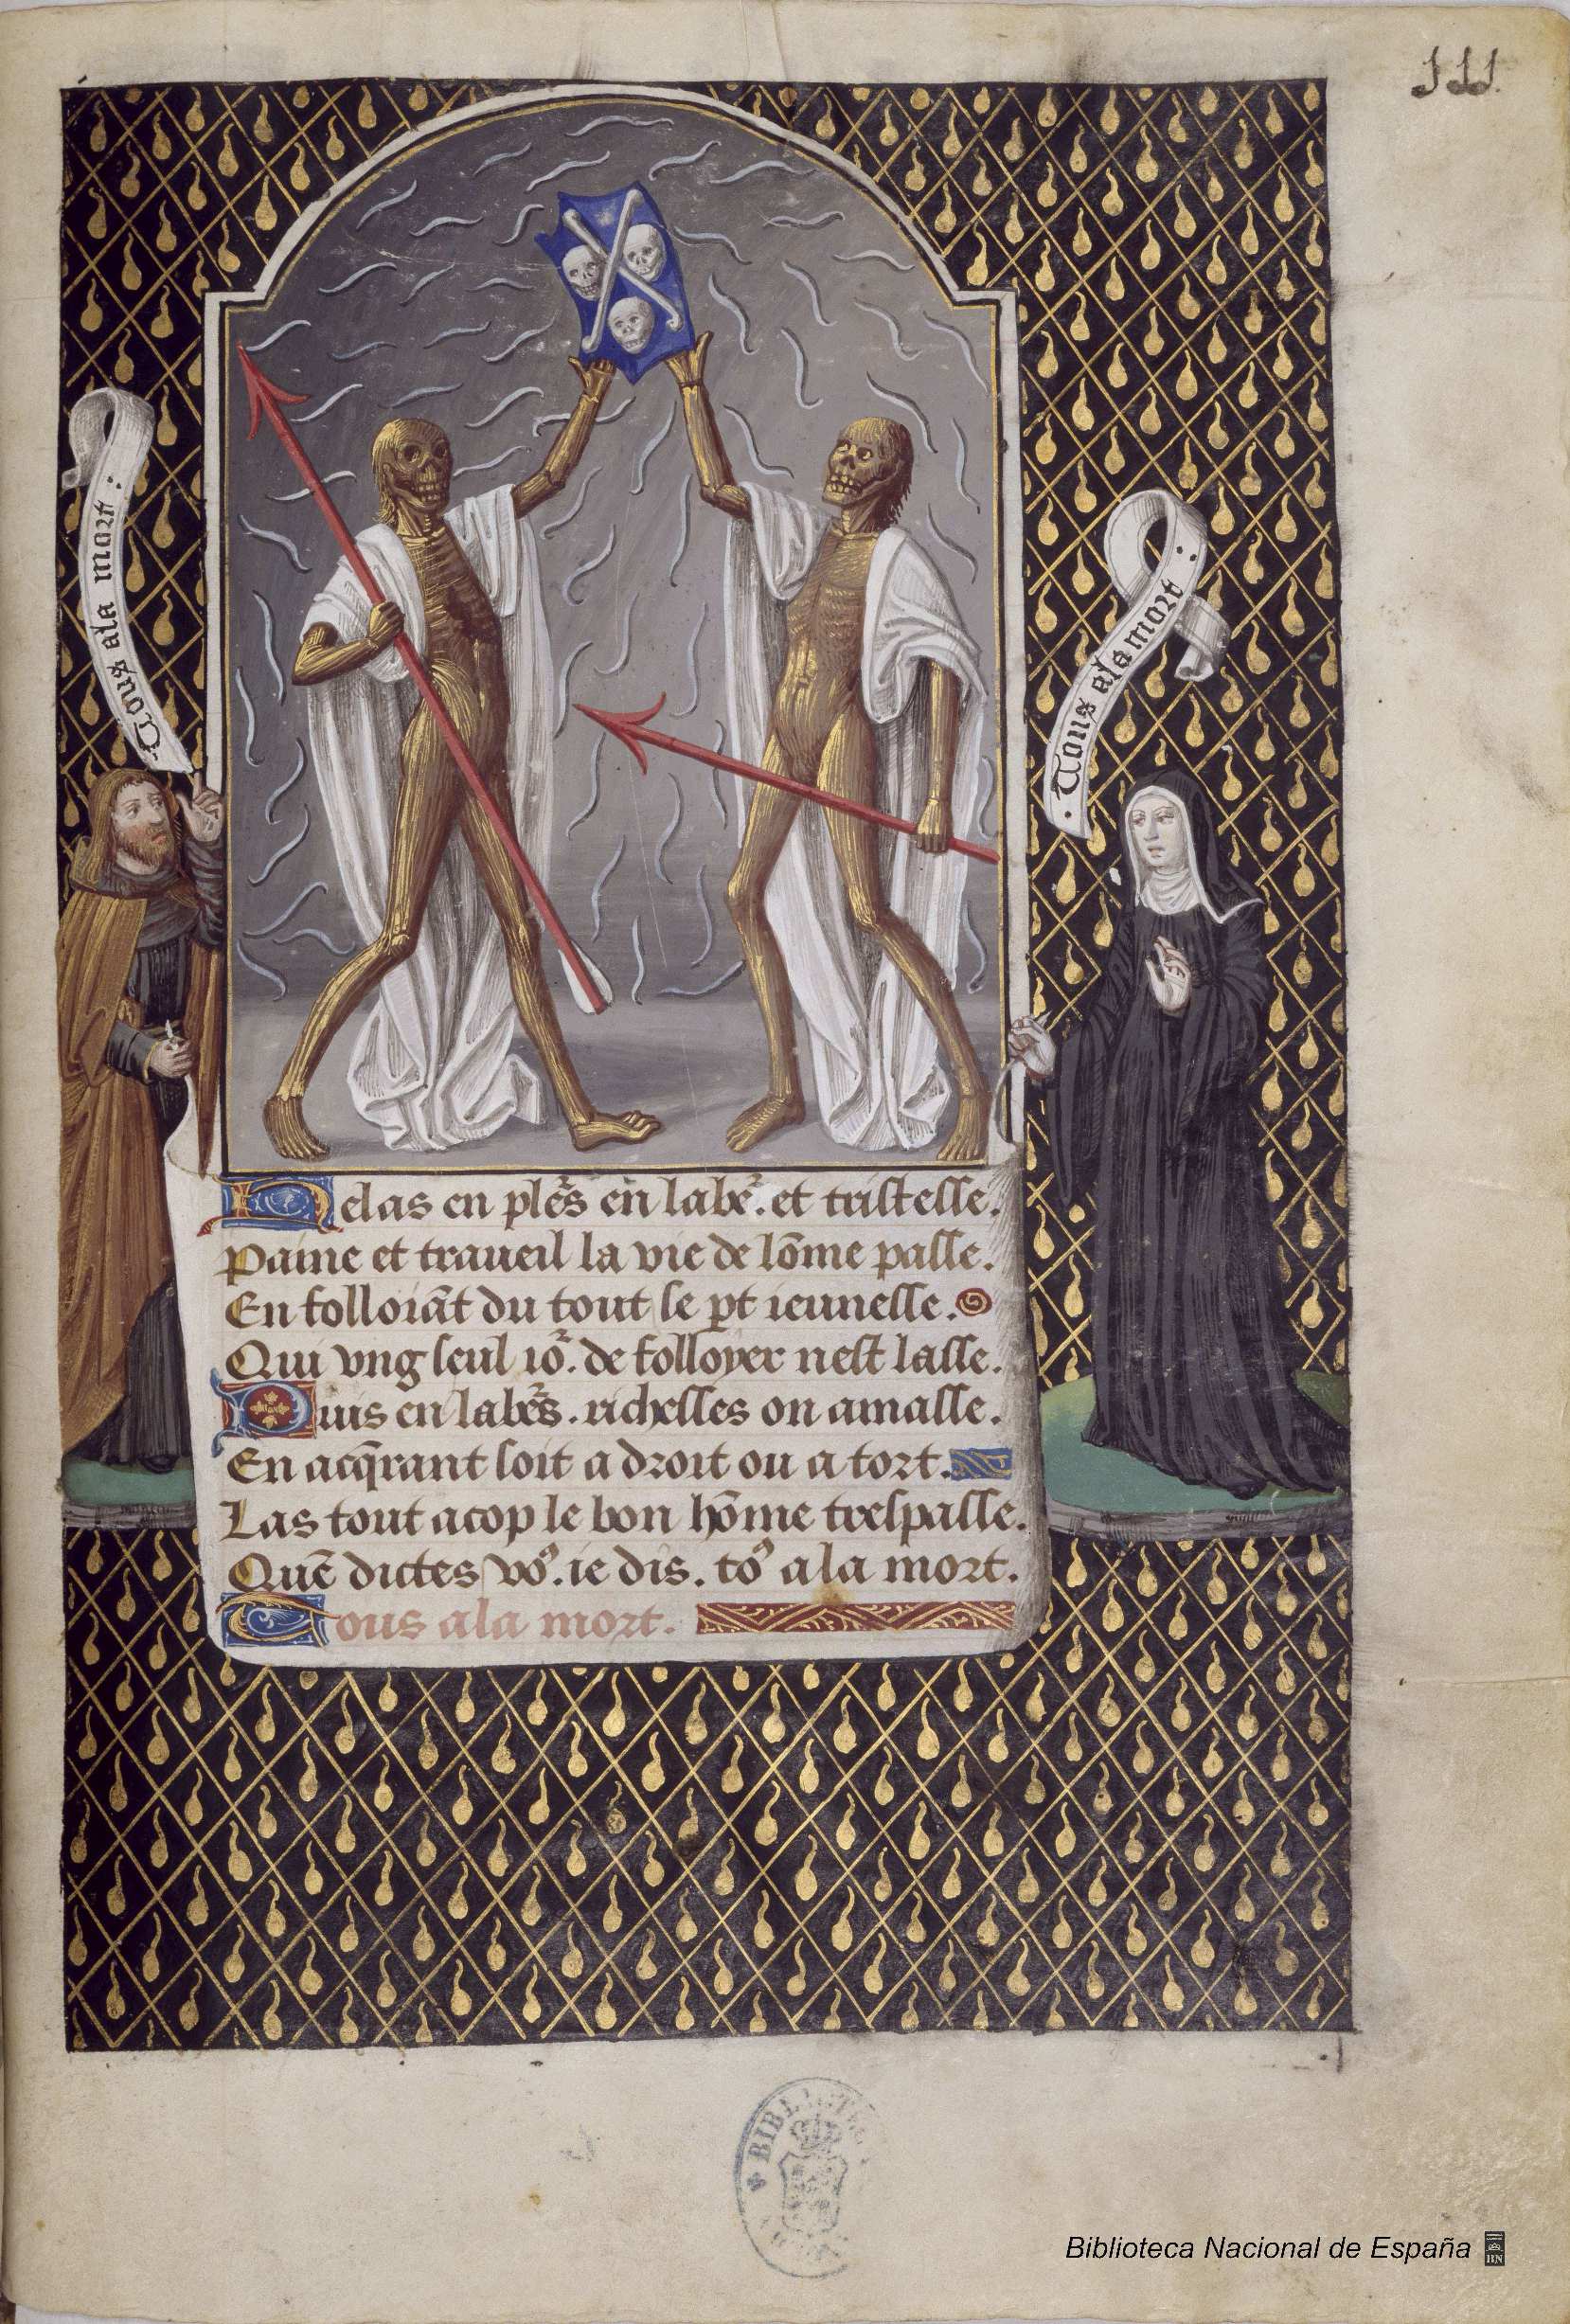 III.
Tous a la mort :
Tous a la mort :
Helas en ple͛s en labe͛. et tristesse.
Paine et traueil la vie de lōme passe.
En folloiāt du tout se pt ieunesse.
Qui vng seul io͛. de folloyer nest lasse.
Puis en labe͛s. richesses on amasse.
En acq̄rant soit a droit ou a tort.
Las tout acop le bon hōme trespasse.
Quē dictes voꝰ. ie dis. toꝰ a la mort.
Tous a la mort.
BIBLIOTE
Biblioteca Nacional de España
BN